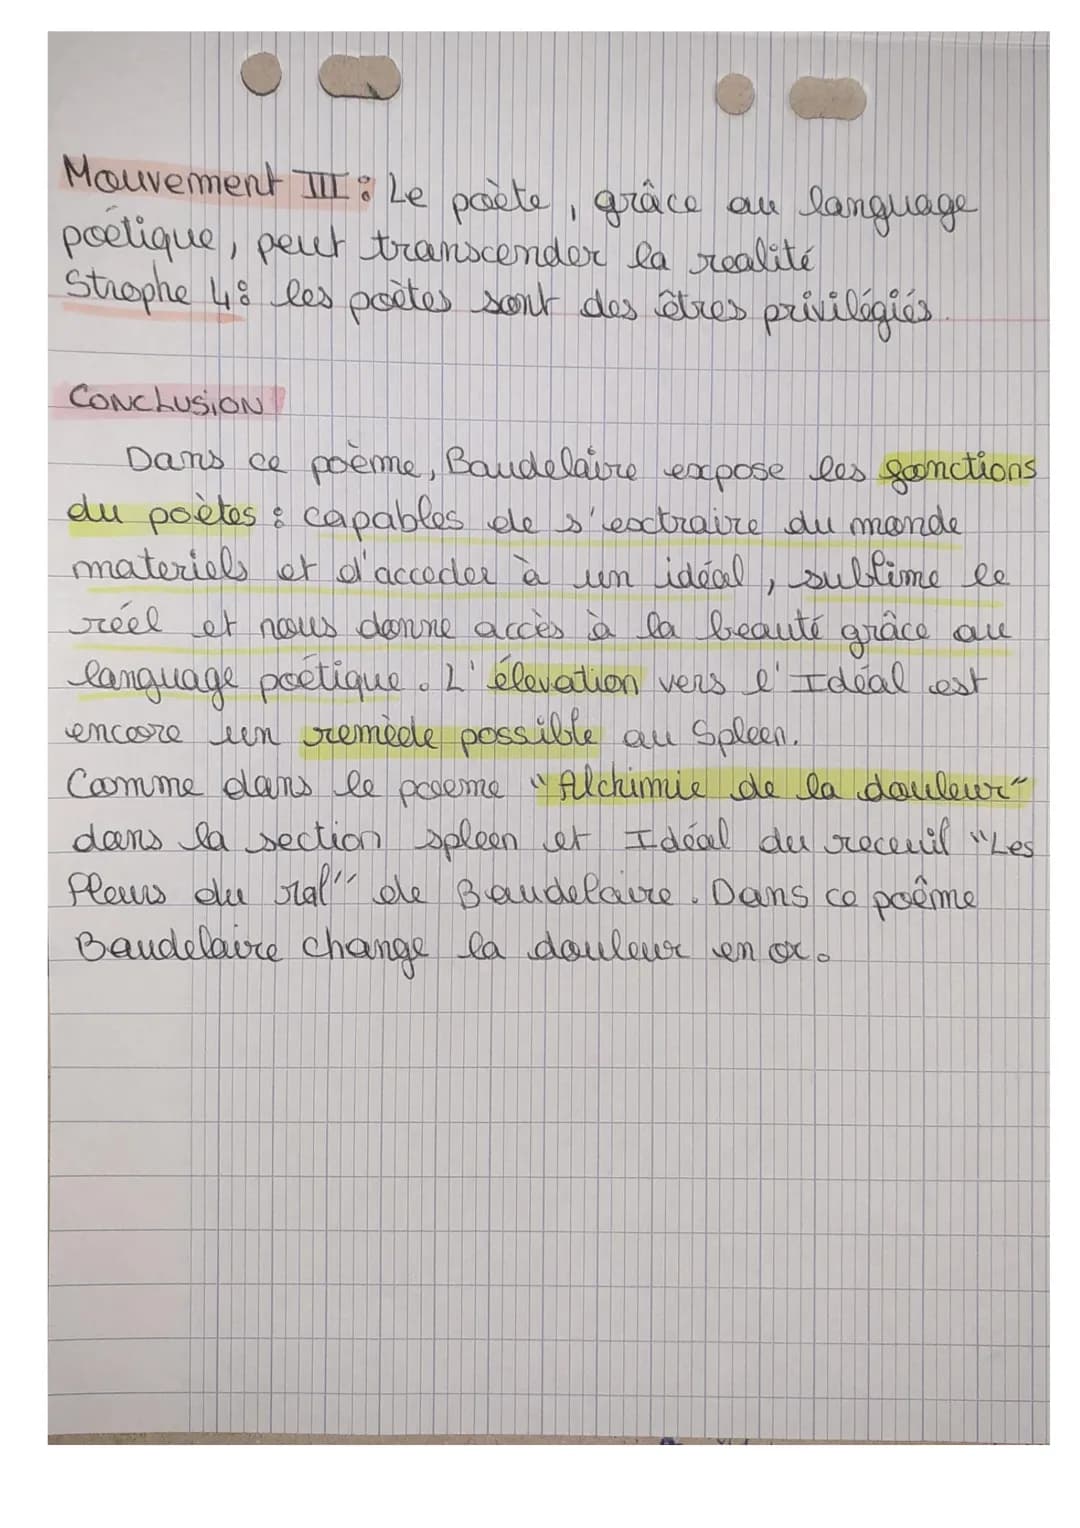 Mouvement III : Le poète, grâce au language
poétique, peut transcender la realité
Strophe 4 : les poètes sont des êtres privilégiés.
CONCLUSION
Dans ce poème, Baudelaire expose les fonctions
du poètes : capables de s'extraire du monde
materiels et d'acceder à un idéal, sublime le
réel et nous donne accès à la beauté grâce au
language poétique. L'élevation vers l'Idéal est
encore un remède possible au Spleen.
Comme dans le poeme "Alchimie de la douleur"
dans la section spleen et Idéal du receuil "Les
fleurs du mal" de Baudelaire. Dans ce poême
Baudelaire change la douleur en or.